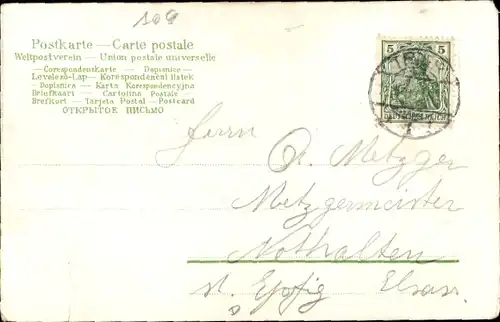 109
Postkarte — Carte postale
Weltpostverein — Union postale universelle
— Correspondentkarte — Dopisnice —
Levelező-Lap — Korespondencni listek
— Dopisnica — Karta Korespondencyjna
Briefkaart — Cartolina Postale —
Brefkort — Tarjeta Postal — Postcard
ОТКРЫТОЕ ПИСЬМО
5 5
DEUTSCHES REICH
Herrn
A. Metzger
Metzgermeister
Nothalten
st. Epfig Elsass